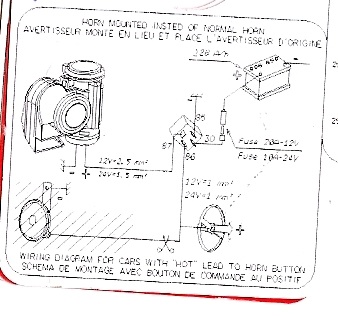 HORN MOUNTED INSTED OF NORMAL HORN
AVERTISSEUR MONTE EN LIEU ET PLACE L'AVERTISSEUR D'ORIGINE
85
30
87
86
Fuse 20A-12V
Fuse 10A-24V
12V=2.5 mm²
24V=1.5 mm²
12V=1 mm²
24V=1 mm²
WIRING DIAGRAM FOR CARS WITH "HOT" LEAD TO HORN BUTTON
SCHEMA DE MONTAGE AVEC BOUTON DE COMMANDE AU POSITIF